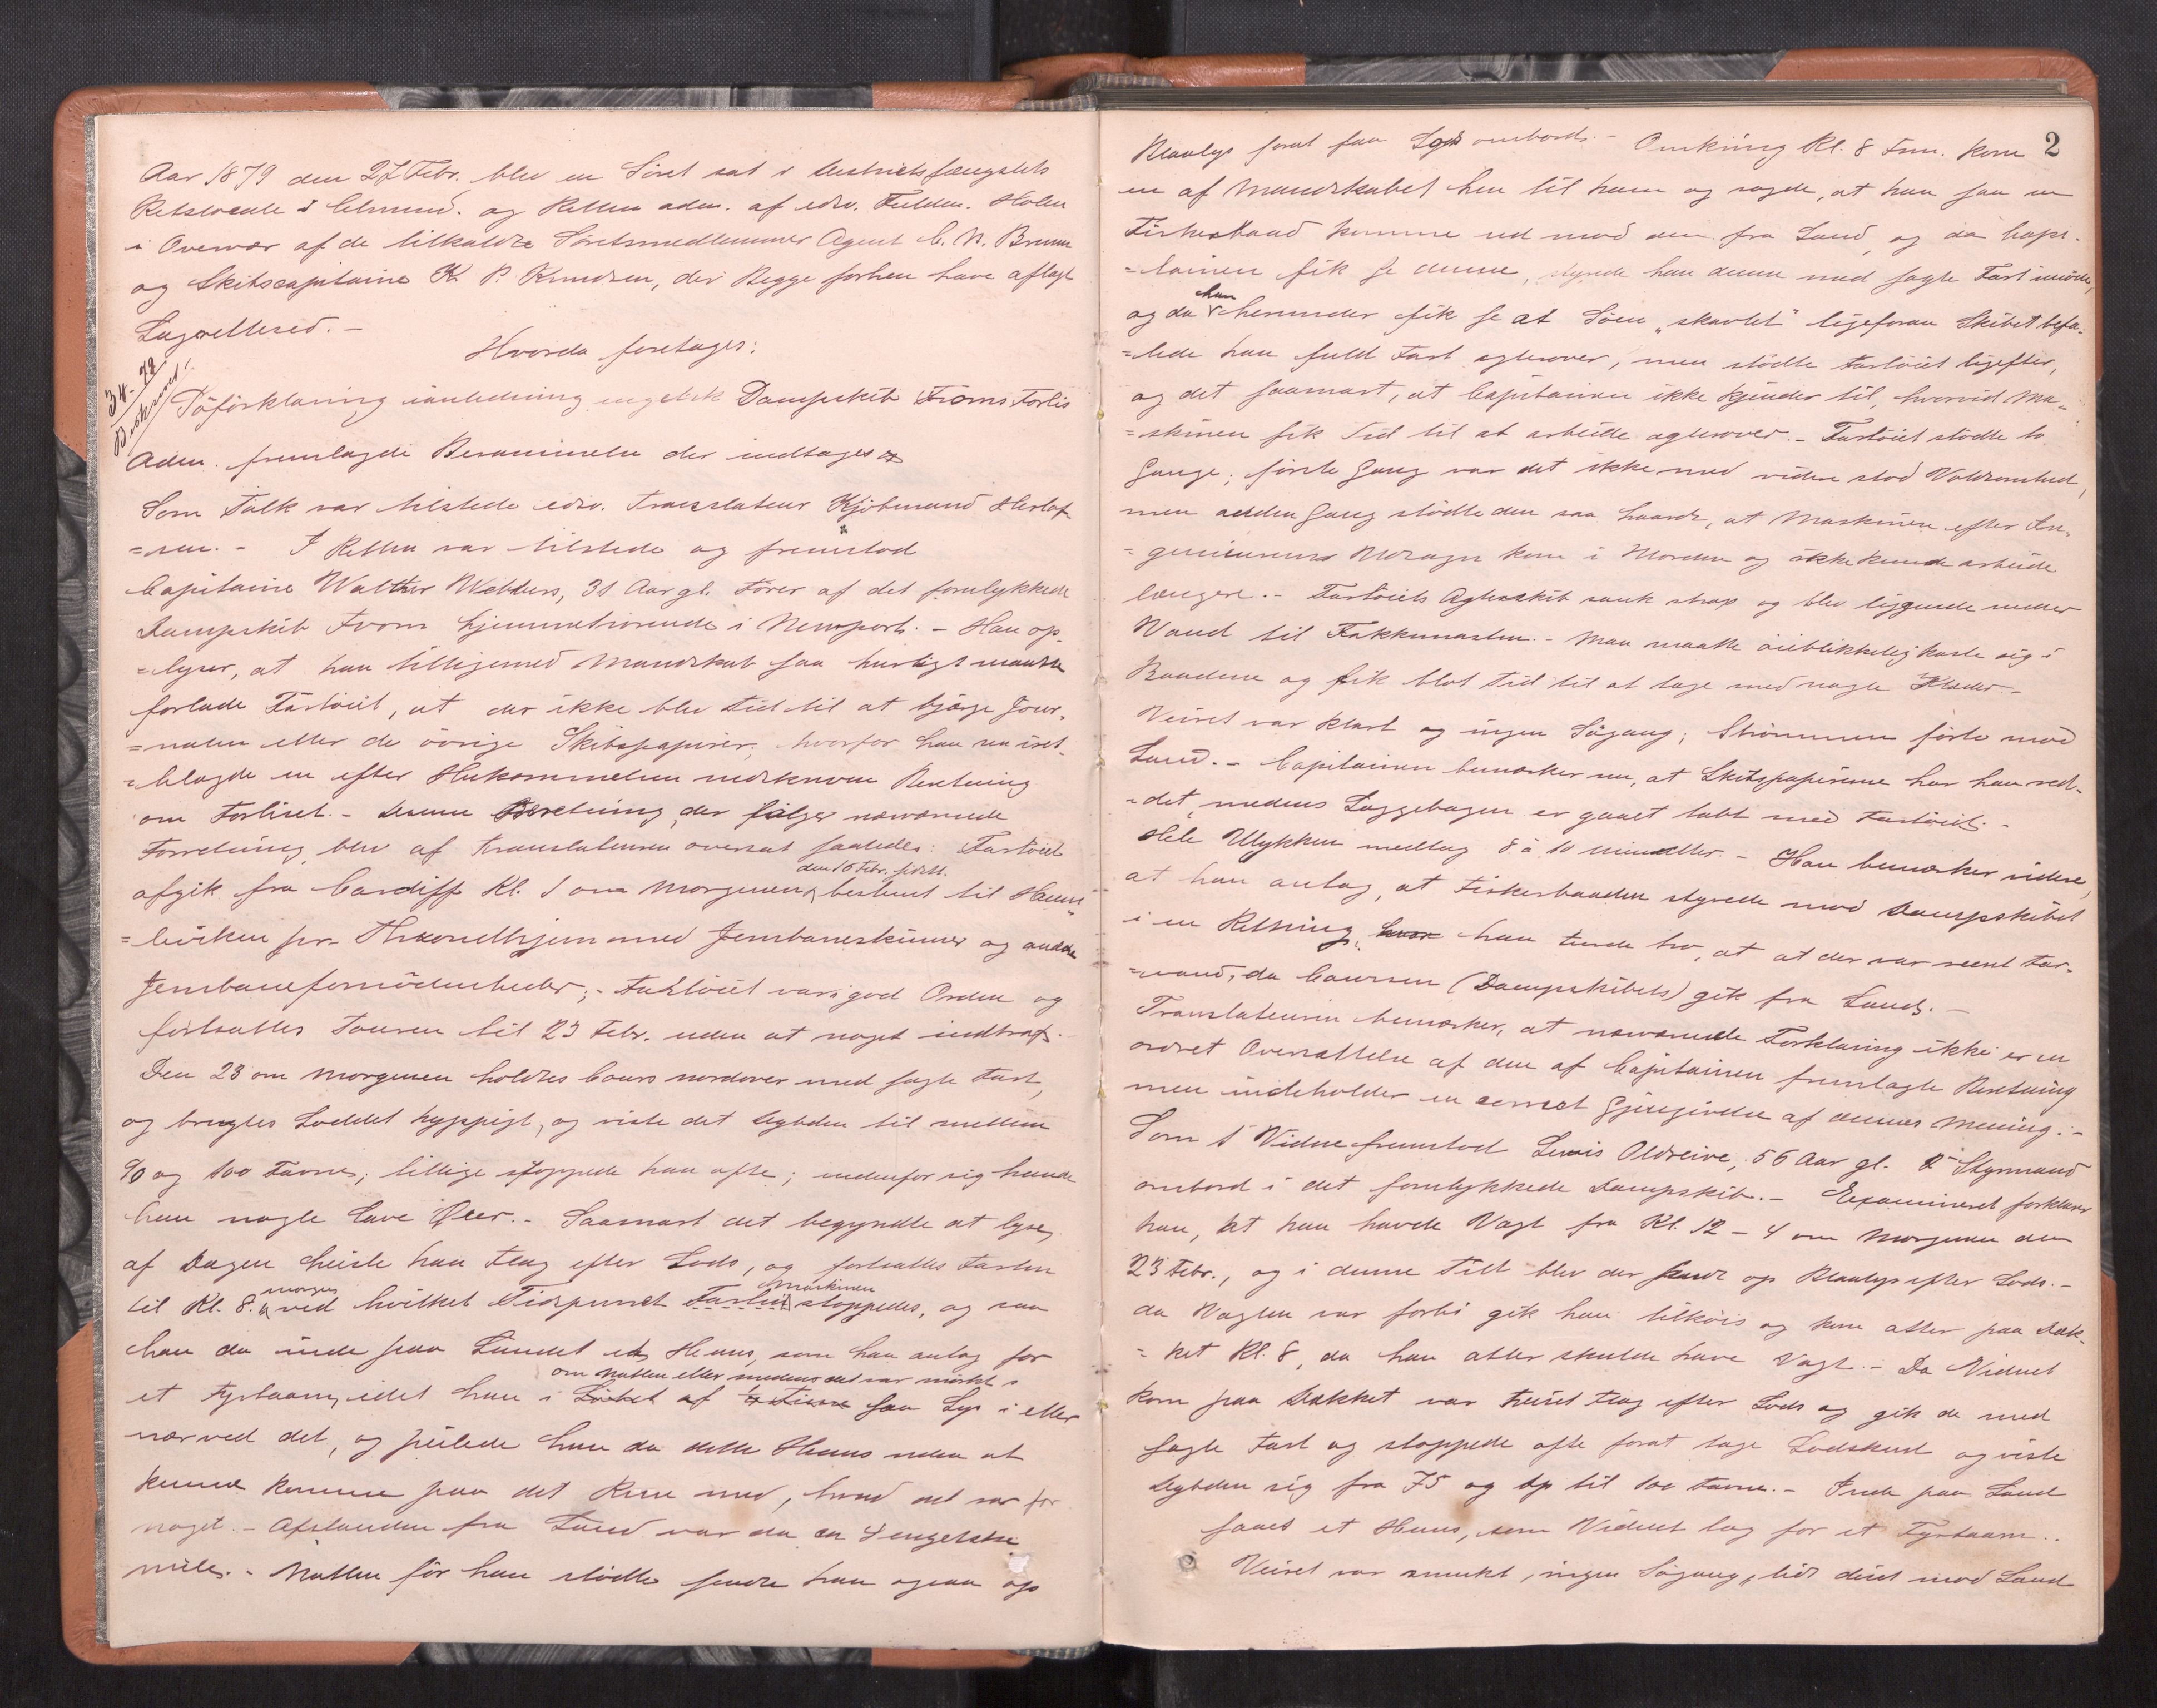 Aar 1879 den 27 Febr. blev en Söret sat i Distriktsfængslets
Retslocale i Clmsund. og Retten adm. af edsv. Fuldm. Holm
i Overvær af de tilkaldte Söretsmedlemmer Agent C. N. Bruun
og Skibscapitaine K. P. Knudsen, der Begge forhen have aflagt
Lagrettesed. -
Hvorda foretages:
34-79
Beskrevet!
Söforklaring i anledning engelsk Dampskib Froms Forlis
Adm. fremlagde Berammelse der indtages
Som Tolk var tilstede edsv. Translateur Kjöbmand Herlof-
=sen. - I Retten var tilstede og fremstod
Capitaine Walther Webbers, 31 Aar gl. Förer af det forulykkede
Dampskib From hjemmehörende i Newport. - Han op-
=lyser, at han tilligemed Mandskab saa hurtigt maatte
forlade Fartöiet, at der ikke blev Tid til at bjerge Jour-
=nalen eller de övrige Skibspapirer, hvorfor han nu iret-
=lagde en efter Hukommelsen nedskreven Beretning
om Forliset. - Denne Beretning, der fölger nærværende
Forretning blev af Translateuren oversat saaledes: Fartöiet
afgik fra Cardiff Kl. 1 om Morgenen den 16 Febr. sidstl. bestemt til Hom-
=melviken pr. Throndhjem med Jernbaneskinner og andre
Jernbanefornödenheder; - Fartöiet var i god Orden og
fortsattes Touren til 23 Febr. uden at noget indtraf. -
Den 23 om Morgenen holdtes Cours nordover med sagte Fart,
og brugtes Loddet hyppigt, og viste det Dybden til mellem
90 og 100 Favne; tillige stoppede han ofte; indenfor sig havde
han nogle lave Öer. - Saasnart det begyndte at lyse
af Dagen heiste han Flag efter Lods, og fortsattes Farten
til Kl. 8 morgen ved hvilket Tidspunct Fartöiet Maskinen stoppedes, og saa
han da inde paa Landet et Huus, som han antog for
et Fyrtaarn, idet han i Löbet af ½ Time om Natten eller medens det var mörkt saa Lys i eller
nærved det, og peilede han da dette Huus uden at
kunne komme paa det Rene med, hvad det var for
noget. - Afstanden fra Land var da ca 4 engelske
miles. - Natten för han stödte sendte han ogsaa op
2
Blaalys forat faa Lods ombord. - Omkring Kl. 8 Fm. kom
en af Mandskabet hen til ham og sagde, at han saa en
Fiskerbaad komme ud mod dem fra Land, og da Capi-
=tainen fik se denne, styrede han denne med sagte Fart imöde,
og da han herunder fik se at Söen "skavlet" ligeforan Skibet befa-
=lede han fuld Fart agterover, men stödte Fartöiet ligefter,
og det saasnart, at Capitainen ikke kjender til, hvorvidt Ma-
=skinen fik Tid til at arbeide agterover. - Fartöiet stödte to
Gange; förste Gang var det ikke med videre stor Voldsomhed,
men anden Gang stödte den saa haardt, at Maskinen efter In-
=genieurens Udsagn kom i Uorden og ikke kunde arbeide
længere. - Fartöiets Agterskib sank strax og blev liggende under
Vand til Fokkemasten. - Man maatte öieblikkelig kaste sig i
Baadene og fik blot Tid til at tage med nogle Klæder. -
Veiret var klart og ingen Sögang; Strömmen förte mod
Land. - Capitainen bemærker nu, at Skibspapirerne har han red-
=det, medens Loggebogen er gaaet tabt med Fartöiet. -
Hele Ulykken medtog 8 à 10 minutter. - Han bemærker videre,
at han antog, at Fiskerbaaden styrede mod Dampskibet
i en Retning, hvor han turde tro, at at der var reent Far-
=vand, da Coursen (Dampskibets) gik fra Land. -
Translateuren bemærker, at nærværende Forklaring ikke er en
ordret Oversættelse af den af Capitainen fremlagte Beretning
men indeholder en correct Gjengivelse af dennes Mening. -
Som 1' Vidne fremstod Lewis Oldreive, 56 Aar gl. 2' Styrmand
ombord i det forulykkede Dampskib. - Examineret forklarer
han, at han havde Vagt fra Kl. 12 - 4 om Morgenen den
23 Febr., og i denne Tid blev der sendt op Blaalys efter Lods. -
da Vagten var forbi gik han tilköis og kom atter paa Dæk-
=ket Kl. 8, da han atter skulde have Vagt. - Da Vidnet
kom paa Dækket var heiset Flag efter Lods og gik de med
sagte Fart og stoppede ofte forat tage Lodskud og viste
Dybden sig fra 75 og op til 100 Favne. - Inde paa Land
saaes et Huus, som Vidnet tog for et Fyrtaarn. -
Veiret var smukt, ingen Sögang, lidt diset mod Land